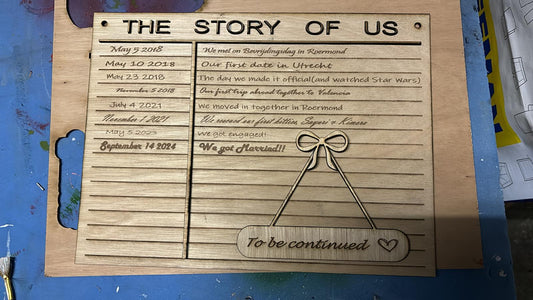 THE STORY OF US
May 5 2018 We met on Bevrijdingsdag in Roermond
May 10 2018 Our first date in Utrecht
May 23 2018 The day we made it official(and watched Star Wars)
November 5 2018 Our first trip abroad together to Valencia
July 4 2021 We moved in together in Roermond
November 1 2021 We rescued our first kittens
May 5 2023 We got engaged!
September 14 2024 We got Married!!
To be continued